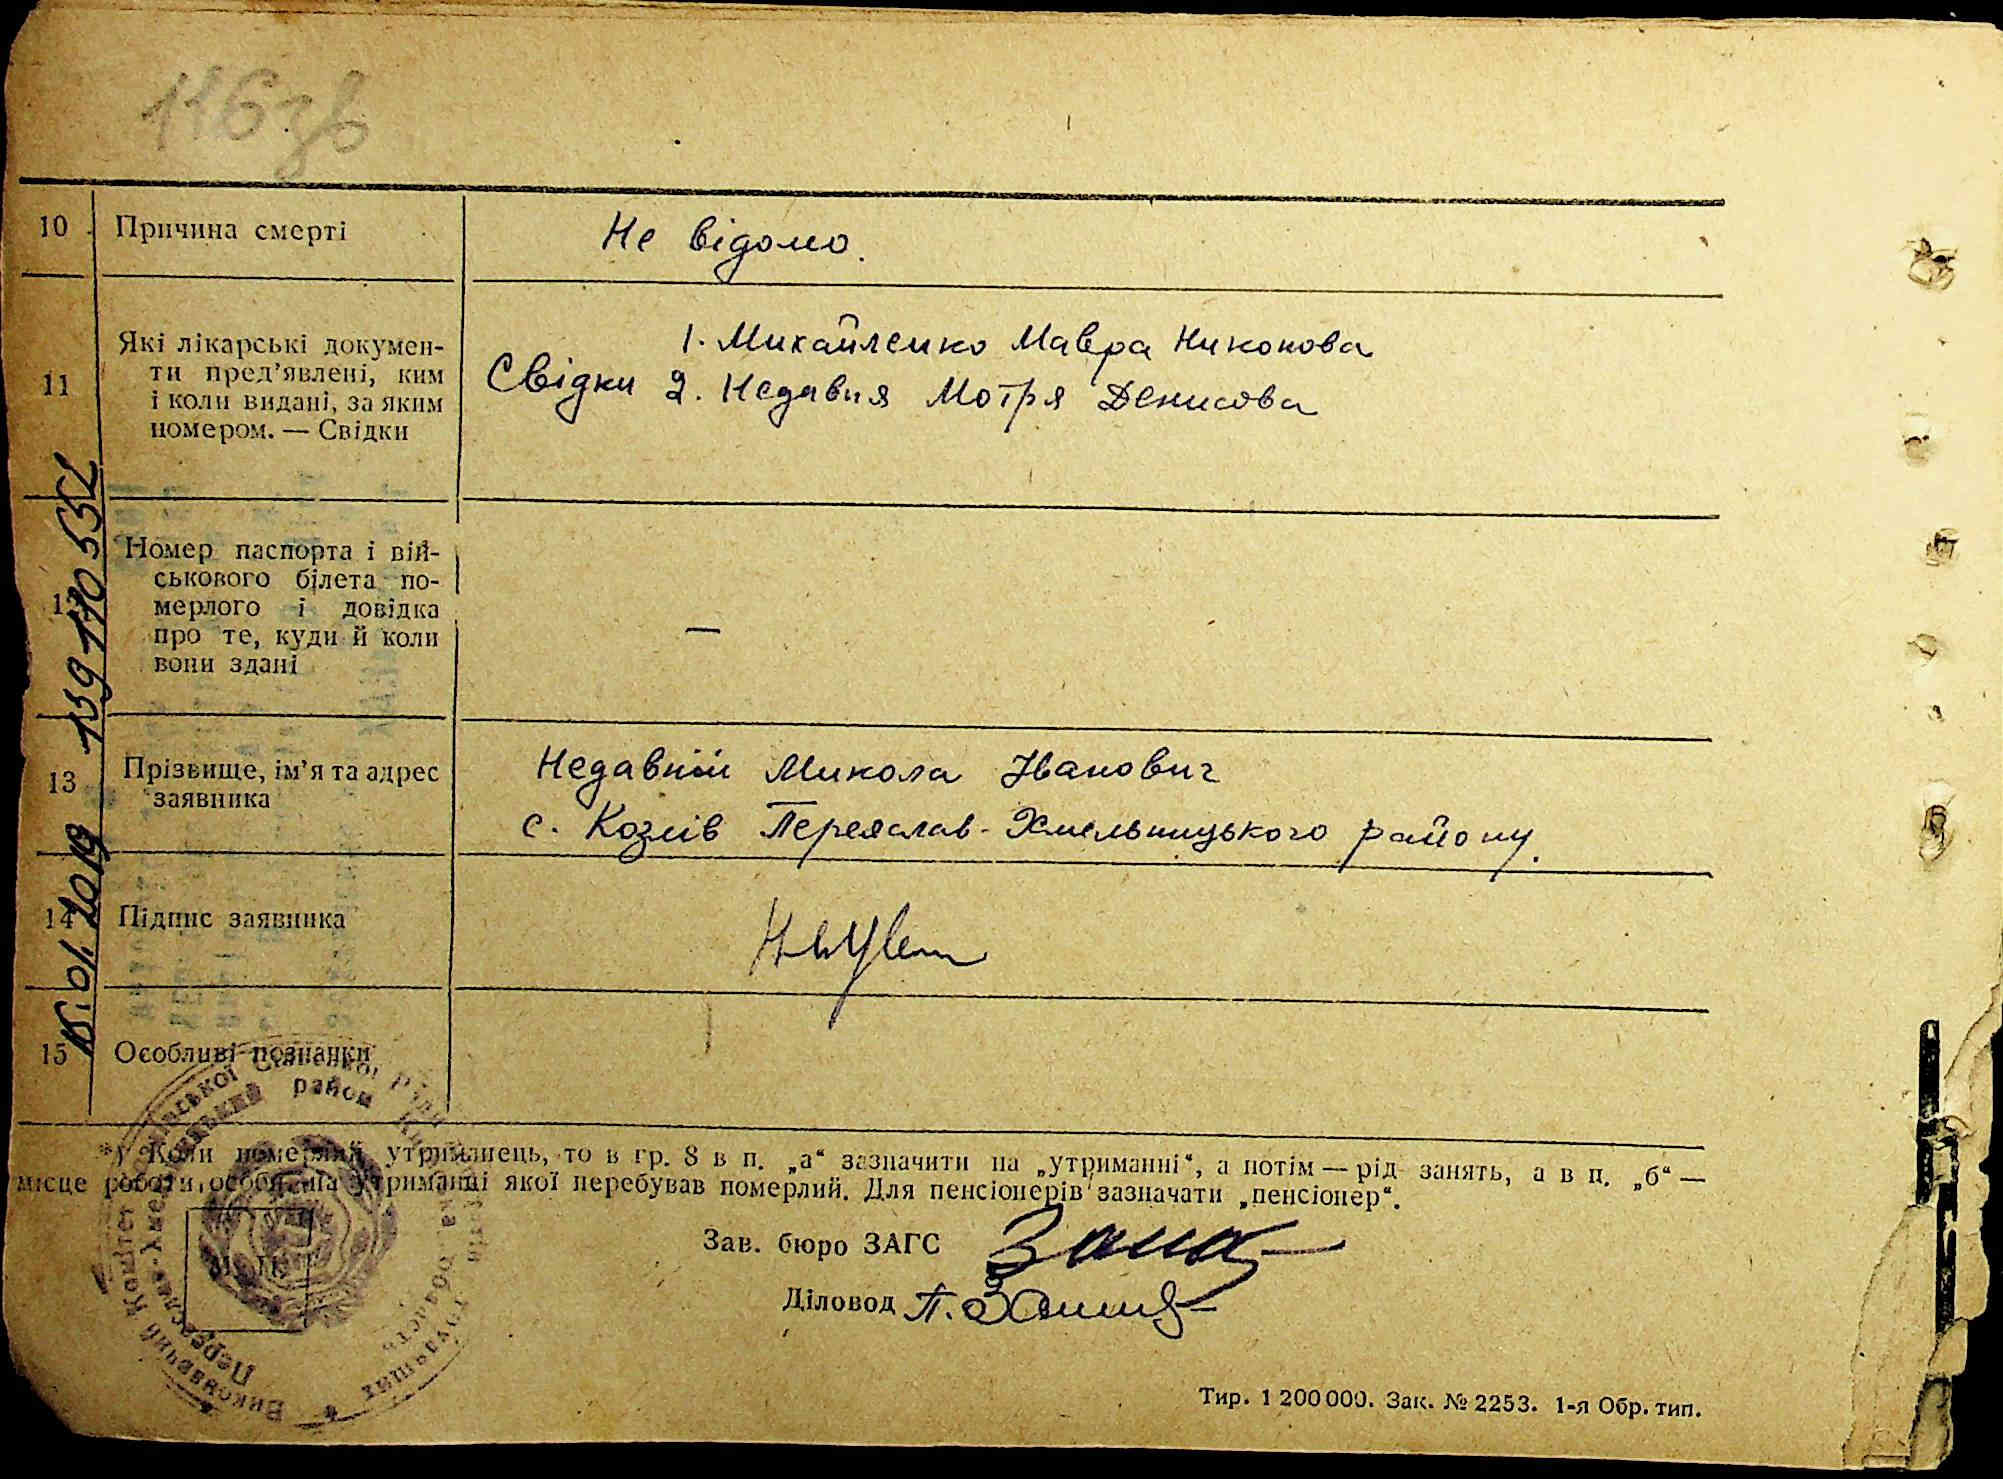 116зв
10 Причина смерті
Не відомо.
11 Які лікарські докумен-
ти пред’явлені, ким
і коли видані, за яким
номером. — Свідки
1. Михайленко Мавра Никонова
Свідки 2. Недавня Мотря Денисова
Номер паспорта і вій-
ськового білета по-
мерлого і довідка
про те, куди й коли
вони здані
—
13 Прізвище, ім’я та адрес
заявника
Недавній Микола Іванович
с. Козлів Переяслав-Хмельницького району.
14 Підпис заявника
15 Особливі познанки
*) Коли померлий утриманець, то в гр. 8 в п. „а“ зазначити на „утриманні“, а потім — рід занять, а в п. „б“ —
місце роботи особи, на утриманні якої перебував померлий. Для пенсіонерів зазначати „пенсіонер“.
Зав. бюро ЗАГС
Діловод
М. П.
Виконавчий Комітет Сільської Ради трудящих
район Київська область
Тир. 1 200 000. Зак. № 2253. 1-я Обр. тип.
01. 2019 159 170 552